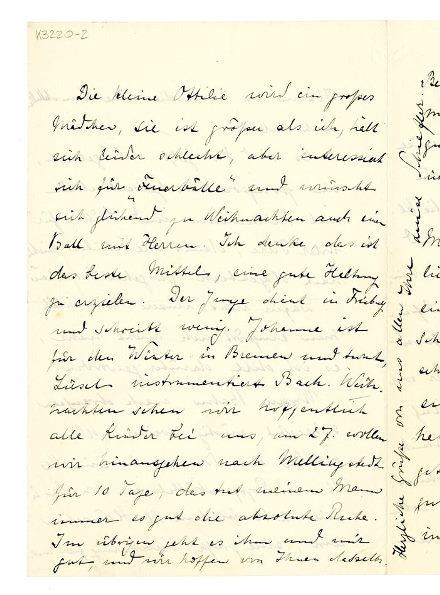 K3220-2
Die kleine Ottilie wird ein großes
Mädchen, sie ist größer als ich, hält
sich leider schlecht, aber interessirt
sich für „Feuerbälle“ und wünscht
sich glühend zu Weihnachten auch ein
Ball mit Herren. Ich denke das ist
das beste Mittel, eine gute Haltung
zu erzielen. Der Junge dient in Freiburg
und schreibt wenig. Johanne ist
für den Winter in Bremen und turnt,
Liesel instrumentiert Bach. Weih-
nachten sehen wir hoffentlich
alle Kinder bei uns, am 27. wollen
wir hinausgehen nach Mellingstedt
für 10 Tage, das tut meinem Mann
immer so gut die absolute Ruhe.
Im übrigen geht es ihm und mir
gut, und wir hoffen von Ihnen dasselbe.
Herzliche Grüße von uns allen Ihre